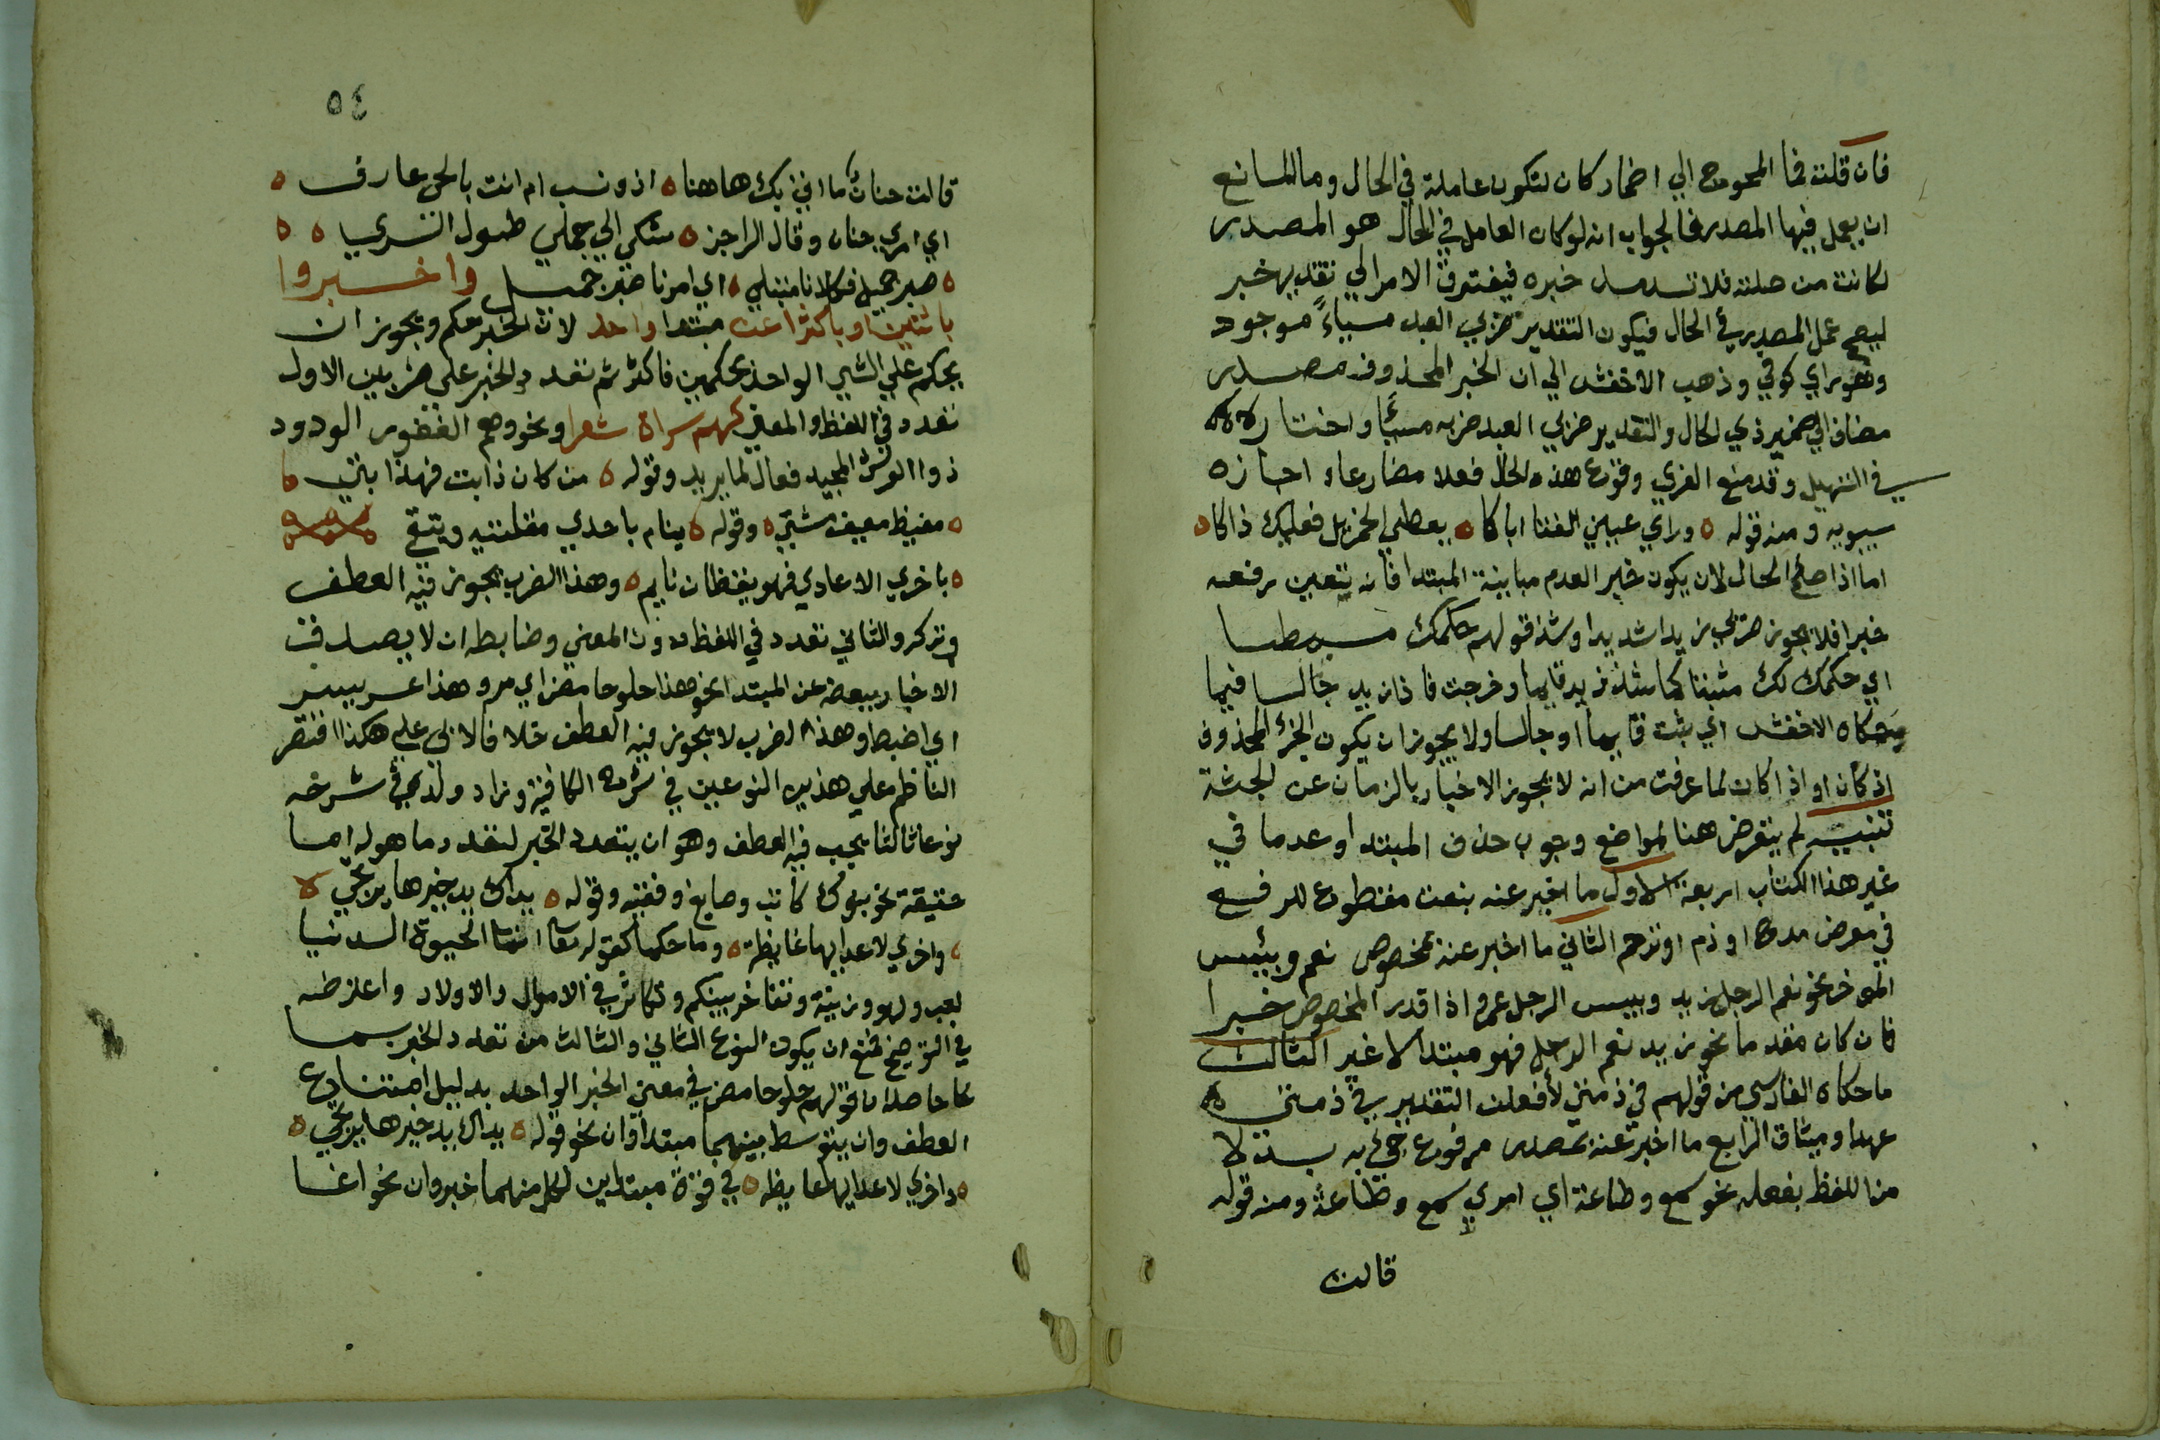 فان قلت فما المحوج الي اضمار كان لتكون عاملة في الحال وما المانع
ان يعمل فيها المصدر فالجواب انه لو كان العامل في الحال هو المصدر
لكانت من صلته فلا تسد مسد خبره فيفتقر الامر الي تقدير خبر
ليصح عمل المصدر في الحال فيكون التقدير ضربي العبد مسياً موجود
وهو راي كوفي وذهب الاخفش الي ان الخبر المحذوف مصدر
مضاف الي ضمير ذي الحال والتقدير ضربي العبد ضربه مسيًا واختاره
في التسهيل وقد منع الفري وقوع هذه الحال فعلا مضارعا واجازه
سيبويه ومنه قوله ه وراي عيني الفتا اباكا ه يعطي الجزيل فعليك ذاكا ه
اما اذا صلح الحال لان يكون خبر العدم مباينة المبتدا فانه يتعين رفعه
خبرا فلا يجوز ضربي زيدا شديدا وشذ قولهم حكمك مسمطا
اي حكمك لك مثبتا كما شذ زيد قايما وخرجت فاذا زيد جالسا فيما
حكاه الاخفش اي ثبت قايما او جالسا ولا يجوز ان يكون الخبر المحذوف
اذ كان او اذا كان لما عرفت من انه لا يجوز الاخبار بالزمان عن الجثة
تنبيه لم يتعرض هنا لمواضع وجوب حذف المبتدا وعدها في
غير هذا الكتاب اربعة الاول ما اخبر عنه بنعت مقطوع للرفع
في معرض مدح او ذم او ترحم الثاني ما اخبر عنه بمخصوص نعم وبيئس
الموخر نحو نعم الرجل زيد وبيس الرجل عمرو اذا قدر المخصوص خبرا
فان كان مقدما نحو زيد نعم الرجل فهو مبتدا لا غير الثالث
ما حكاه الفارسي من قولهم في ذمتي لأفعلن التقدير في ذمتي
عهد او ميثاق الرابع ما اخبر عنه بمصدر مرفوع جي به بدلا
من اللفظ بفعله نحو سمع وطاعة اي امري سمع وطاعة ومنه قوله
قالت
٥٤
قالت حنان ما اتي بك هاهنا ه اذو نسب ام انت بالحي عارف ه
اي امري حنان وقال الراجز ه شكي الي جملي طول السري ه ه
ه صبر جميل فكلانا مبتلي ه اي امرنا صبر جميل واخبروا
باثنين او باكثرا عن مبتدا واحد لان الخبر حكم ويجوز ان
يحكم علي الشي الواحد بحكمين فاكثر ثم تعدد الخبر علي ضربين الاول
تعدد في اللفظ والمعني كهم سراة شعرا ونحو وهو الغفور الودود
ذوا العرش المجيد فعال لما يريد وقوله ه من كان ذا بت فهذا بتي ه
ه مقيظ مصيف مشتي ه وقوله ه ينام باحدي مقلتيه ويتقي
ه باخري الاعادي فهو يقظان نايم ه وهذا الضرب يجوز فيه العطف
وتركه والثاني تعدد في اللفظ دون المعني وضابطه ان لا يصدق
الاخبار ببعضه عن المبتدا نحو هذا حلو حامض اي مز وهذا عسر يسر
اي اضبط وهذا الضرب لا يجوز فيه العطف خلافا لابي علي هكذا اقتصر
الناظم علي هذين النوعين في شرح الكافية وزاد ولده في شرحه
نوعا ثالثا يجب فيه العطف وهو ان يتعدد الخبر لتعدد ما هو له اما
حقيقة نحو بنوك كاتب وصايغ وفقيه وقوله ه يداك يد خيرها يرتجي ه
ه واخري لاعدايها غايظة ه وما حكما كقوله تعا انما الحيوة الدنيا
لعب ولهو وزينة وتفاخر بينكم وتكاثر في الاموال والاولاد واعترضه
في التوضيح فمنع ان يكون النوع الثاني والثالث من تعدد الخبر بما
حاصله ان قولهم حلو حامض في معني الخبر الواحد بدليل امتناع
العطف وان يتوسط بينهما مبتدأ وان نحو قوله ه يداك يد خيرها يرتجي ه
ه واخري لاعدايها غايظه ه في قوة مبتداين لكل منهما خبر وان نحو انما